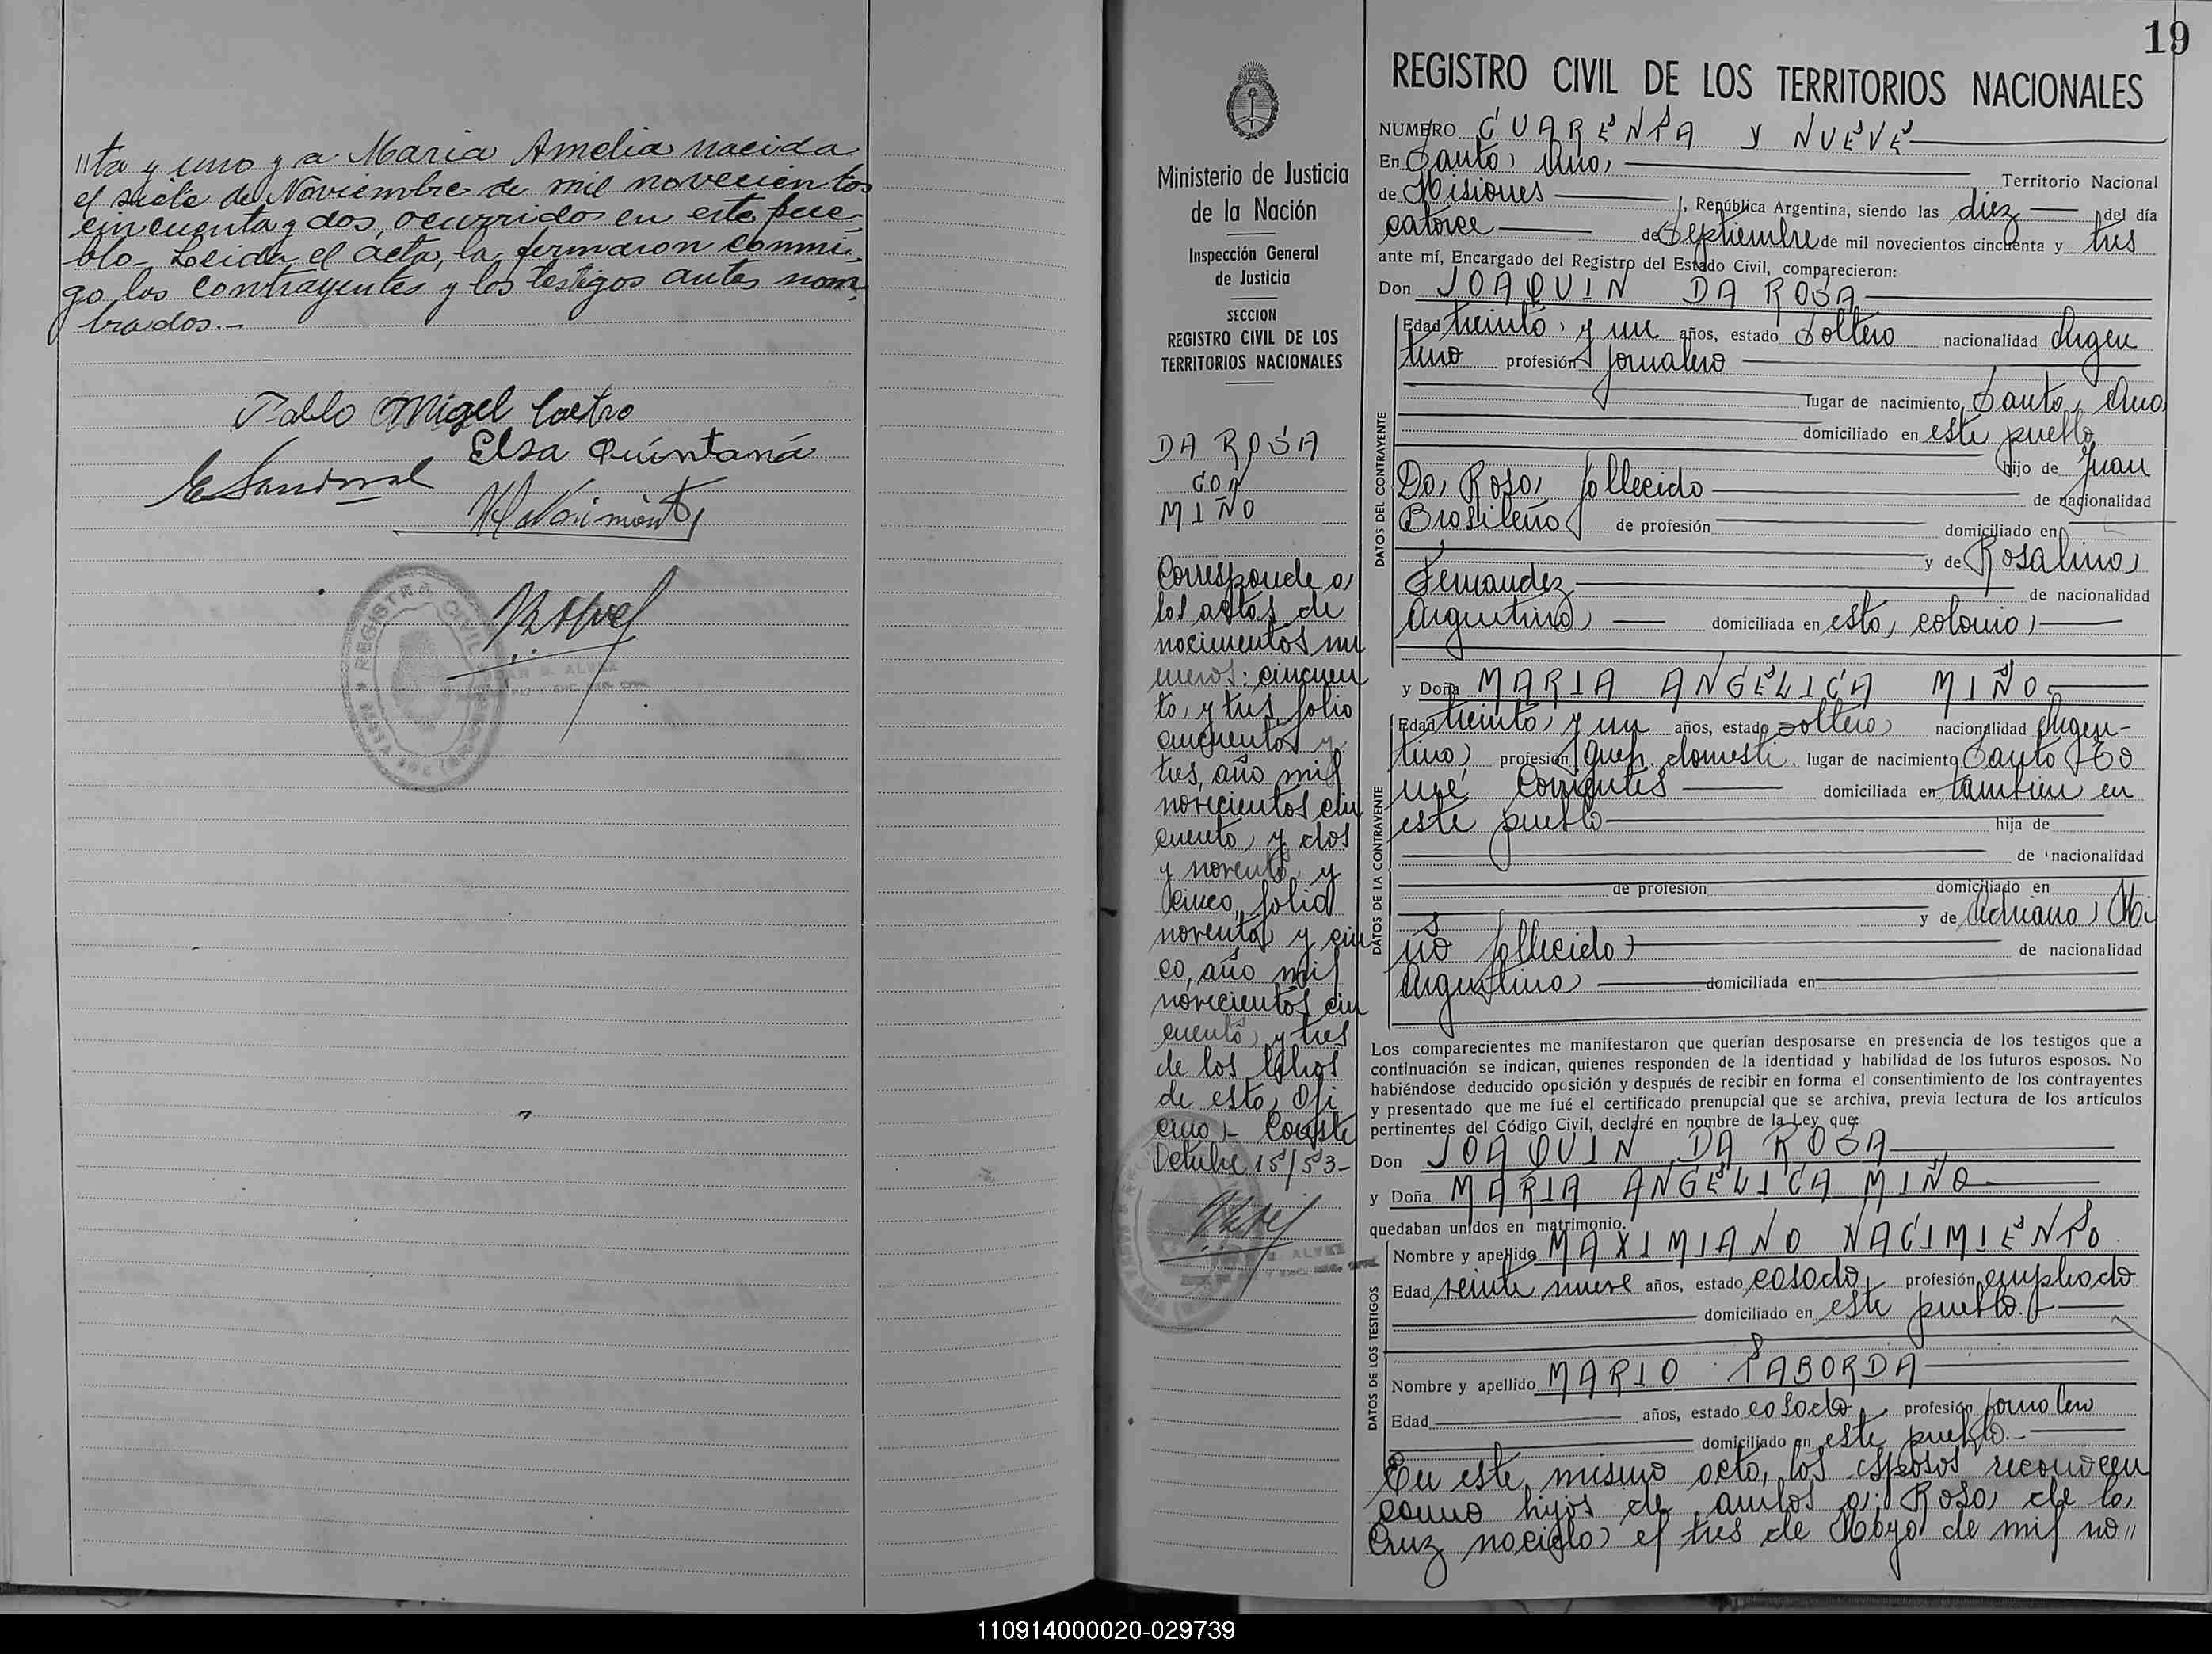 //ta y uno y a Maria Amelia nacida
el siete de Noviembre de mil novecientos
cincuenta y dos, ocurridos en este pue-
blo - Leida el acta, la firmaron conmi-
go los contrayentes y los testigos antes nom-
brados.-
Pablo Migel Castro
Elsa Quintana
E Sandoval
19
REGISTRO CIVIL DE LOS TERRITORIOS NACIONALES
Ministerio de Justicia
de la Nación
Inspección General
de Justicia
SECCION
REGISTRO CIVIL DE LOS
TERRITORIOS NACIONALES
DA ROSA
CON
MIÑO
Corresponde a
las actas de
nacimientos nu
meros: cincuen
ta y tres, folio
cincuenta y
tres, año mil
novecientos cin
cuenta y dos
y noventa y
cinco, folio
noventa y cin
co, año mil
novecientos cin
cuenta y tres
de los libros
de esta Ofi
cina - Conste
Octubre 15/53-
NUMERO CUARENTA Y NUEVE
En Santa Ana, Territorio Nacional
de Misiones, República Argentina, siendo las diez del día
catorce de Septiembre de mil novecientos cincuenta y tres
ante mí, Encargado del Registro del Estado Civil, comparecieron:
Don JOAQUIN DA ROSA
DATOS DEL CONTRAYENTE
Edad treinta y un años, estado soltero nacionalidad Argen
tino profesión jornalero
lugar de nacimiento Santa Ana
domiciliado en este pueblo
hijo de Juan
Da Rosa, fallecido de nacionalidad
Brasileña de profesión domiciliado en
y de Rosalina
Fernandez de nacionalidad
Argentina domiciliada en esta colonia
y Doña MARIA ANGELICA MIÑO
DATOS DE LA CONTRAYENTE
Edad treinta y un años, estado soltera nacionalidad Argen-
tina profesión queh. domesti. lugar de nacimiento Santo To
mé Corrientes domiciliada en tambien en
este pueblo hija de
de nacionalidad
de profesión domiciliado en
y de Adriana Mi
ño fallecida de nacionalidad
Argentina domiciliada en
Los comparecientes me manifestaron que querían desposarse en presencia de los testigos que a
continuación se indican, quienes responden de la identidad y habilidad de los futuros esposos. No
habiéndose deducido oposición y después de recibir en forma el consentimiento de los contrayentes
y presentado que me fué el certificado prenupcial que se archiva, previa lectura de los artículos
pertinentes del Código Civil, declaré en nombre de la Ley que:
Don JOAQUIN DA ROSA
y Doña MARIA ANGELICA MIÑO
quedaban unidos en matrimonio.
DATOS DE LOS TESTIGOS
Nombre y apellido MAXIMIANO NACIMIENTO
Edad veinte nueve años, estado casado, profesión empleado
domiciliado en este pueblo.
Nombre y apellido MARIO TABORDA
Edad años, estado casado, profesión jornalero
domiciliado en este pueblo.-
En este mismo acto, los esposos reconocen
como hijos de ambos a: Rosa de la
Cruz nacida el tres de Mayo de mil no//
110914000020-029739